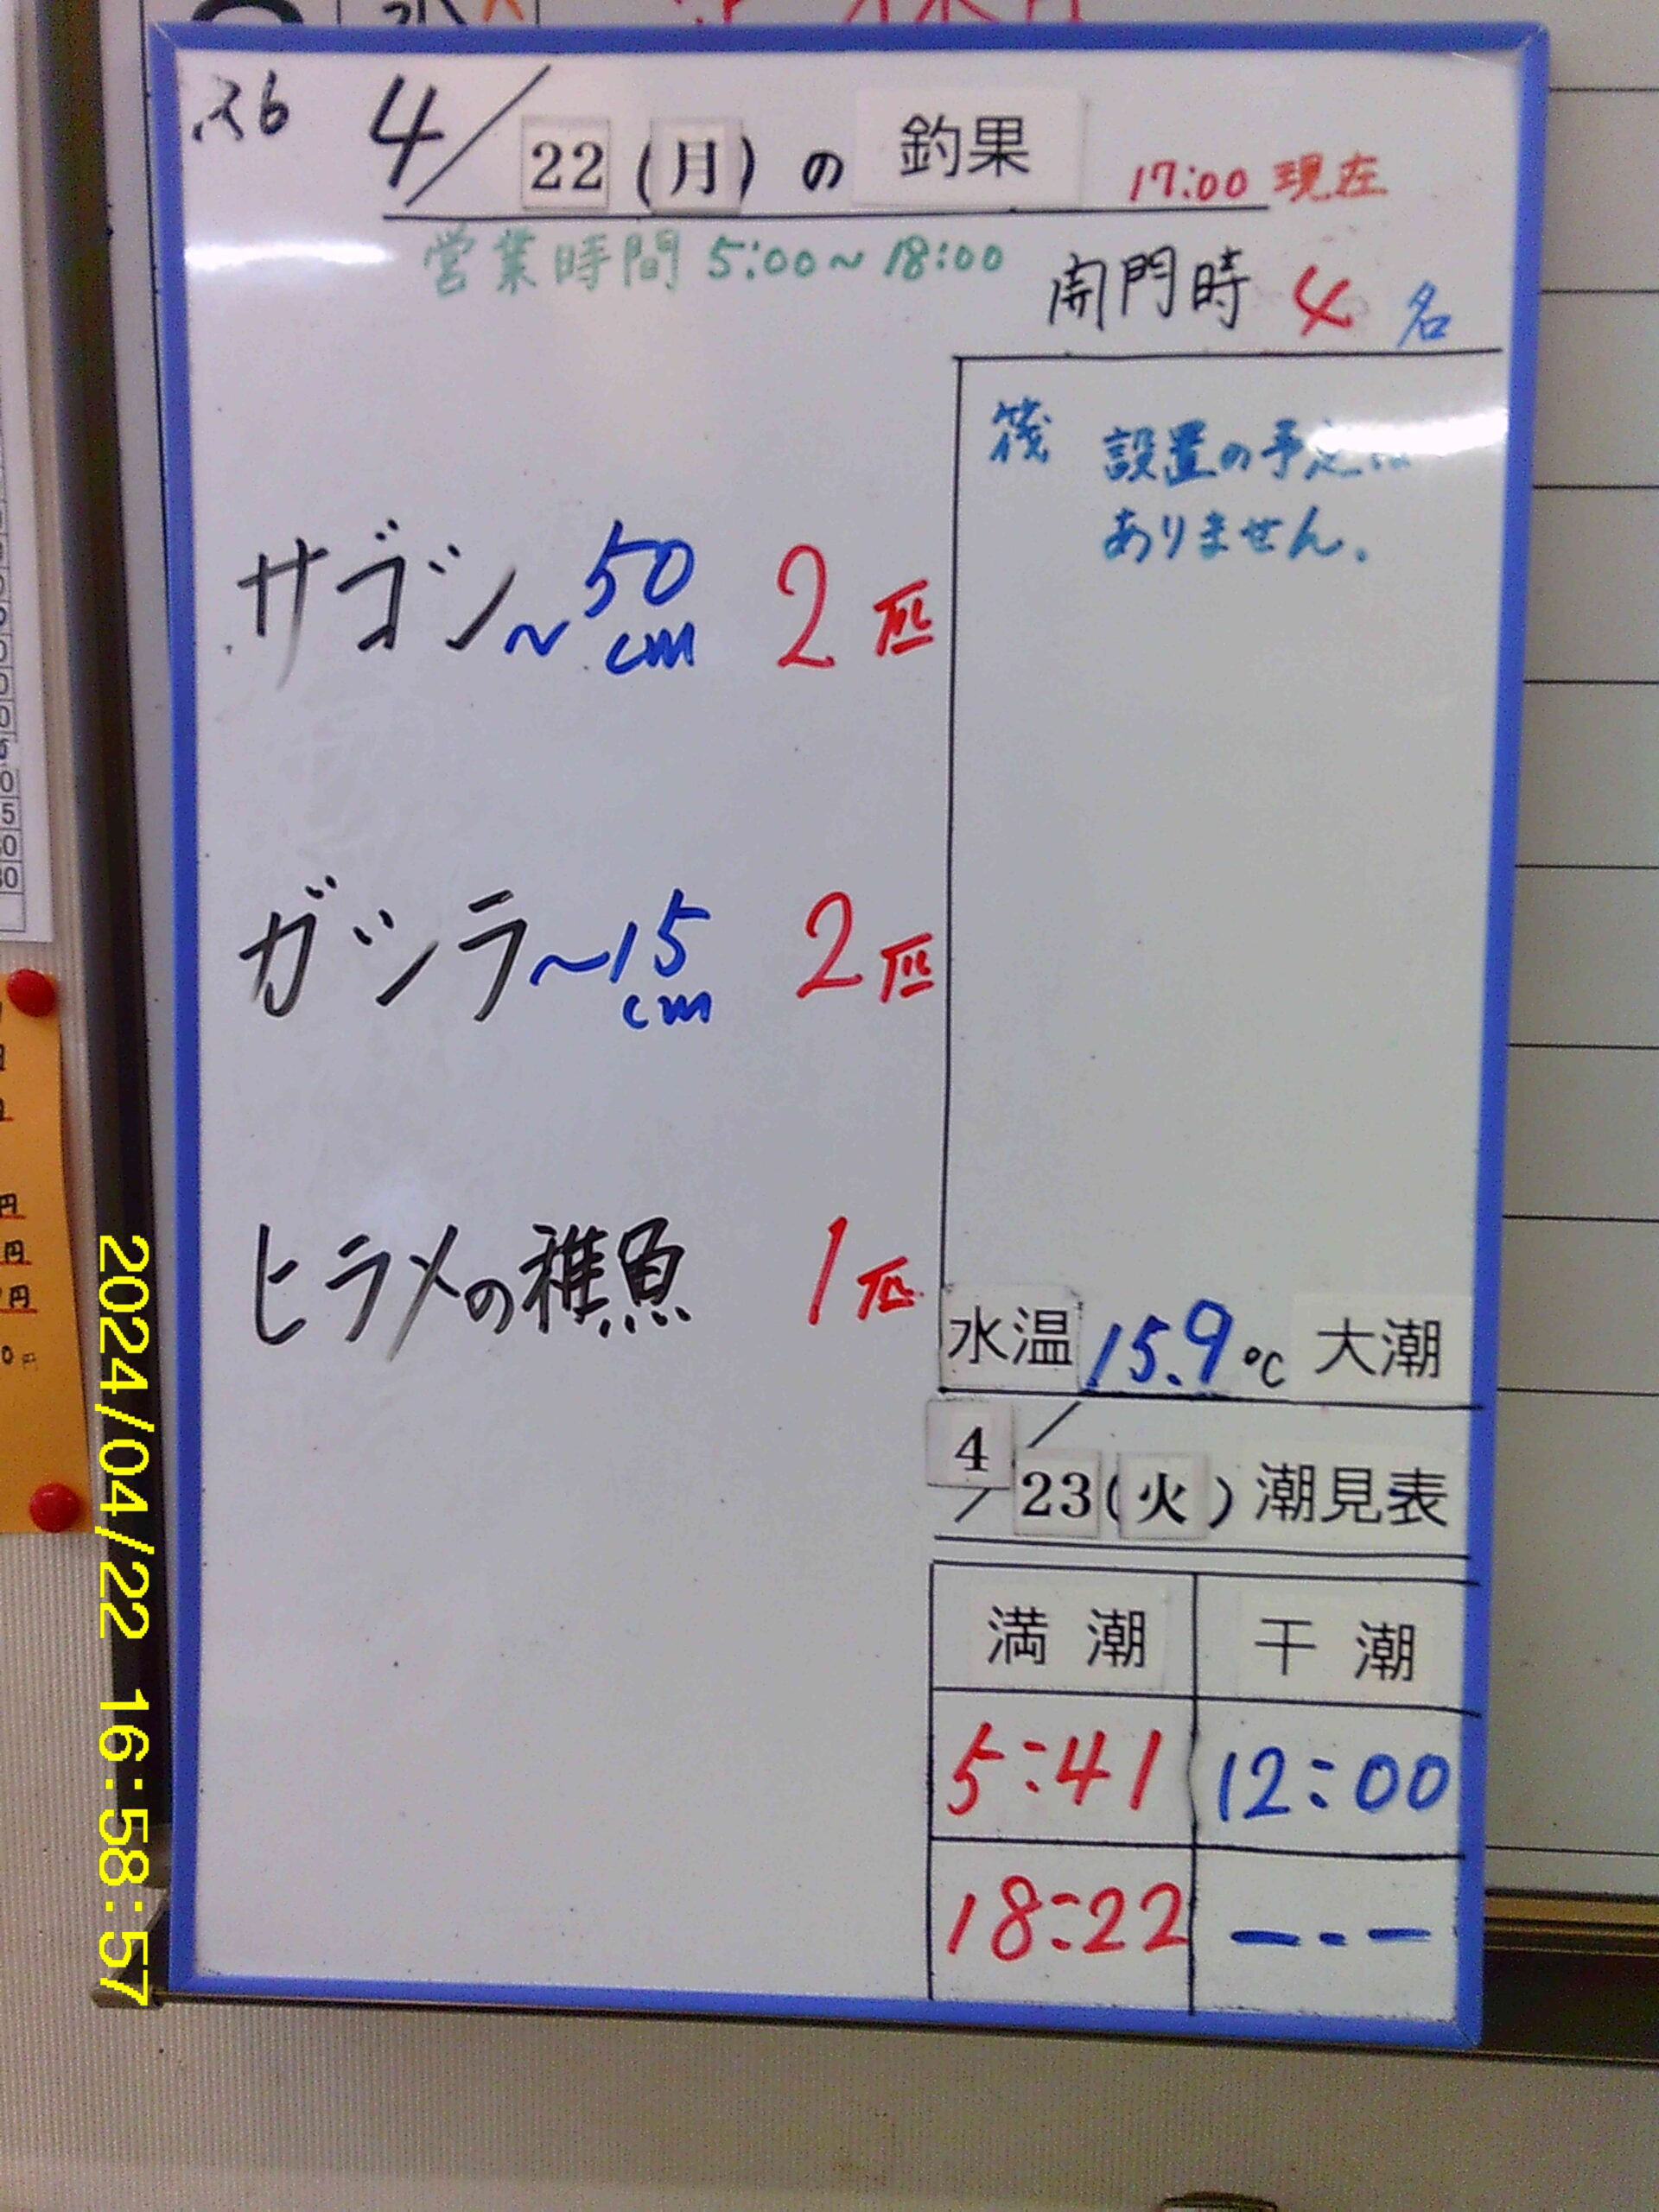 R6 4/22(月)の釣果 17:00現在
営業時間 5:00~18:00
開門時 4名
筏 設置の予定は
ありません。
サゴシ~50cm 2匹
ガシラ~15cm 2匹
ヒラメの稚魚 1匹
水温 15.9℃ 大潮
4/23(火)潮見表
満潮 干潮
5:41 12:00
18:22 ---
2024/04/22 16:58:57